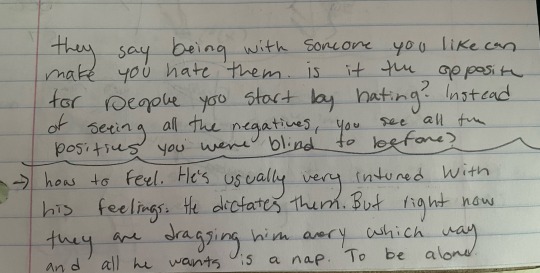 they say being with someone you like can
make you hate them. is it the opposite
for people you start by hating? Instead
of seeing all the negatives, you see all the
positives you were blind to before?
→ how to feel. He's usually very intuned with
his feelings. He dictates them. But right now
they are dragging him avery which way
and all he wants is a nap. To be alone.